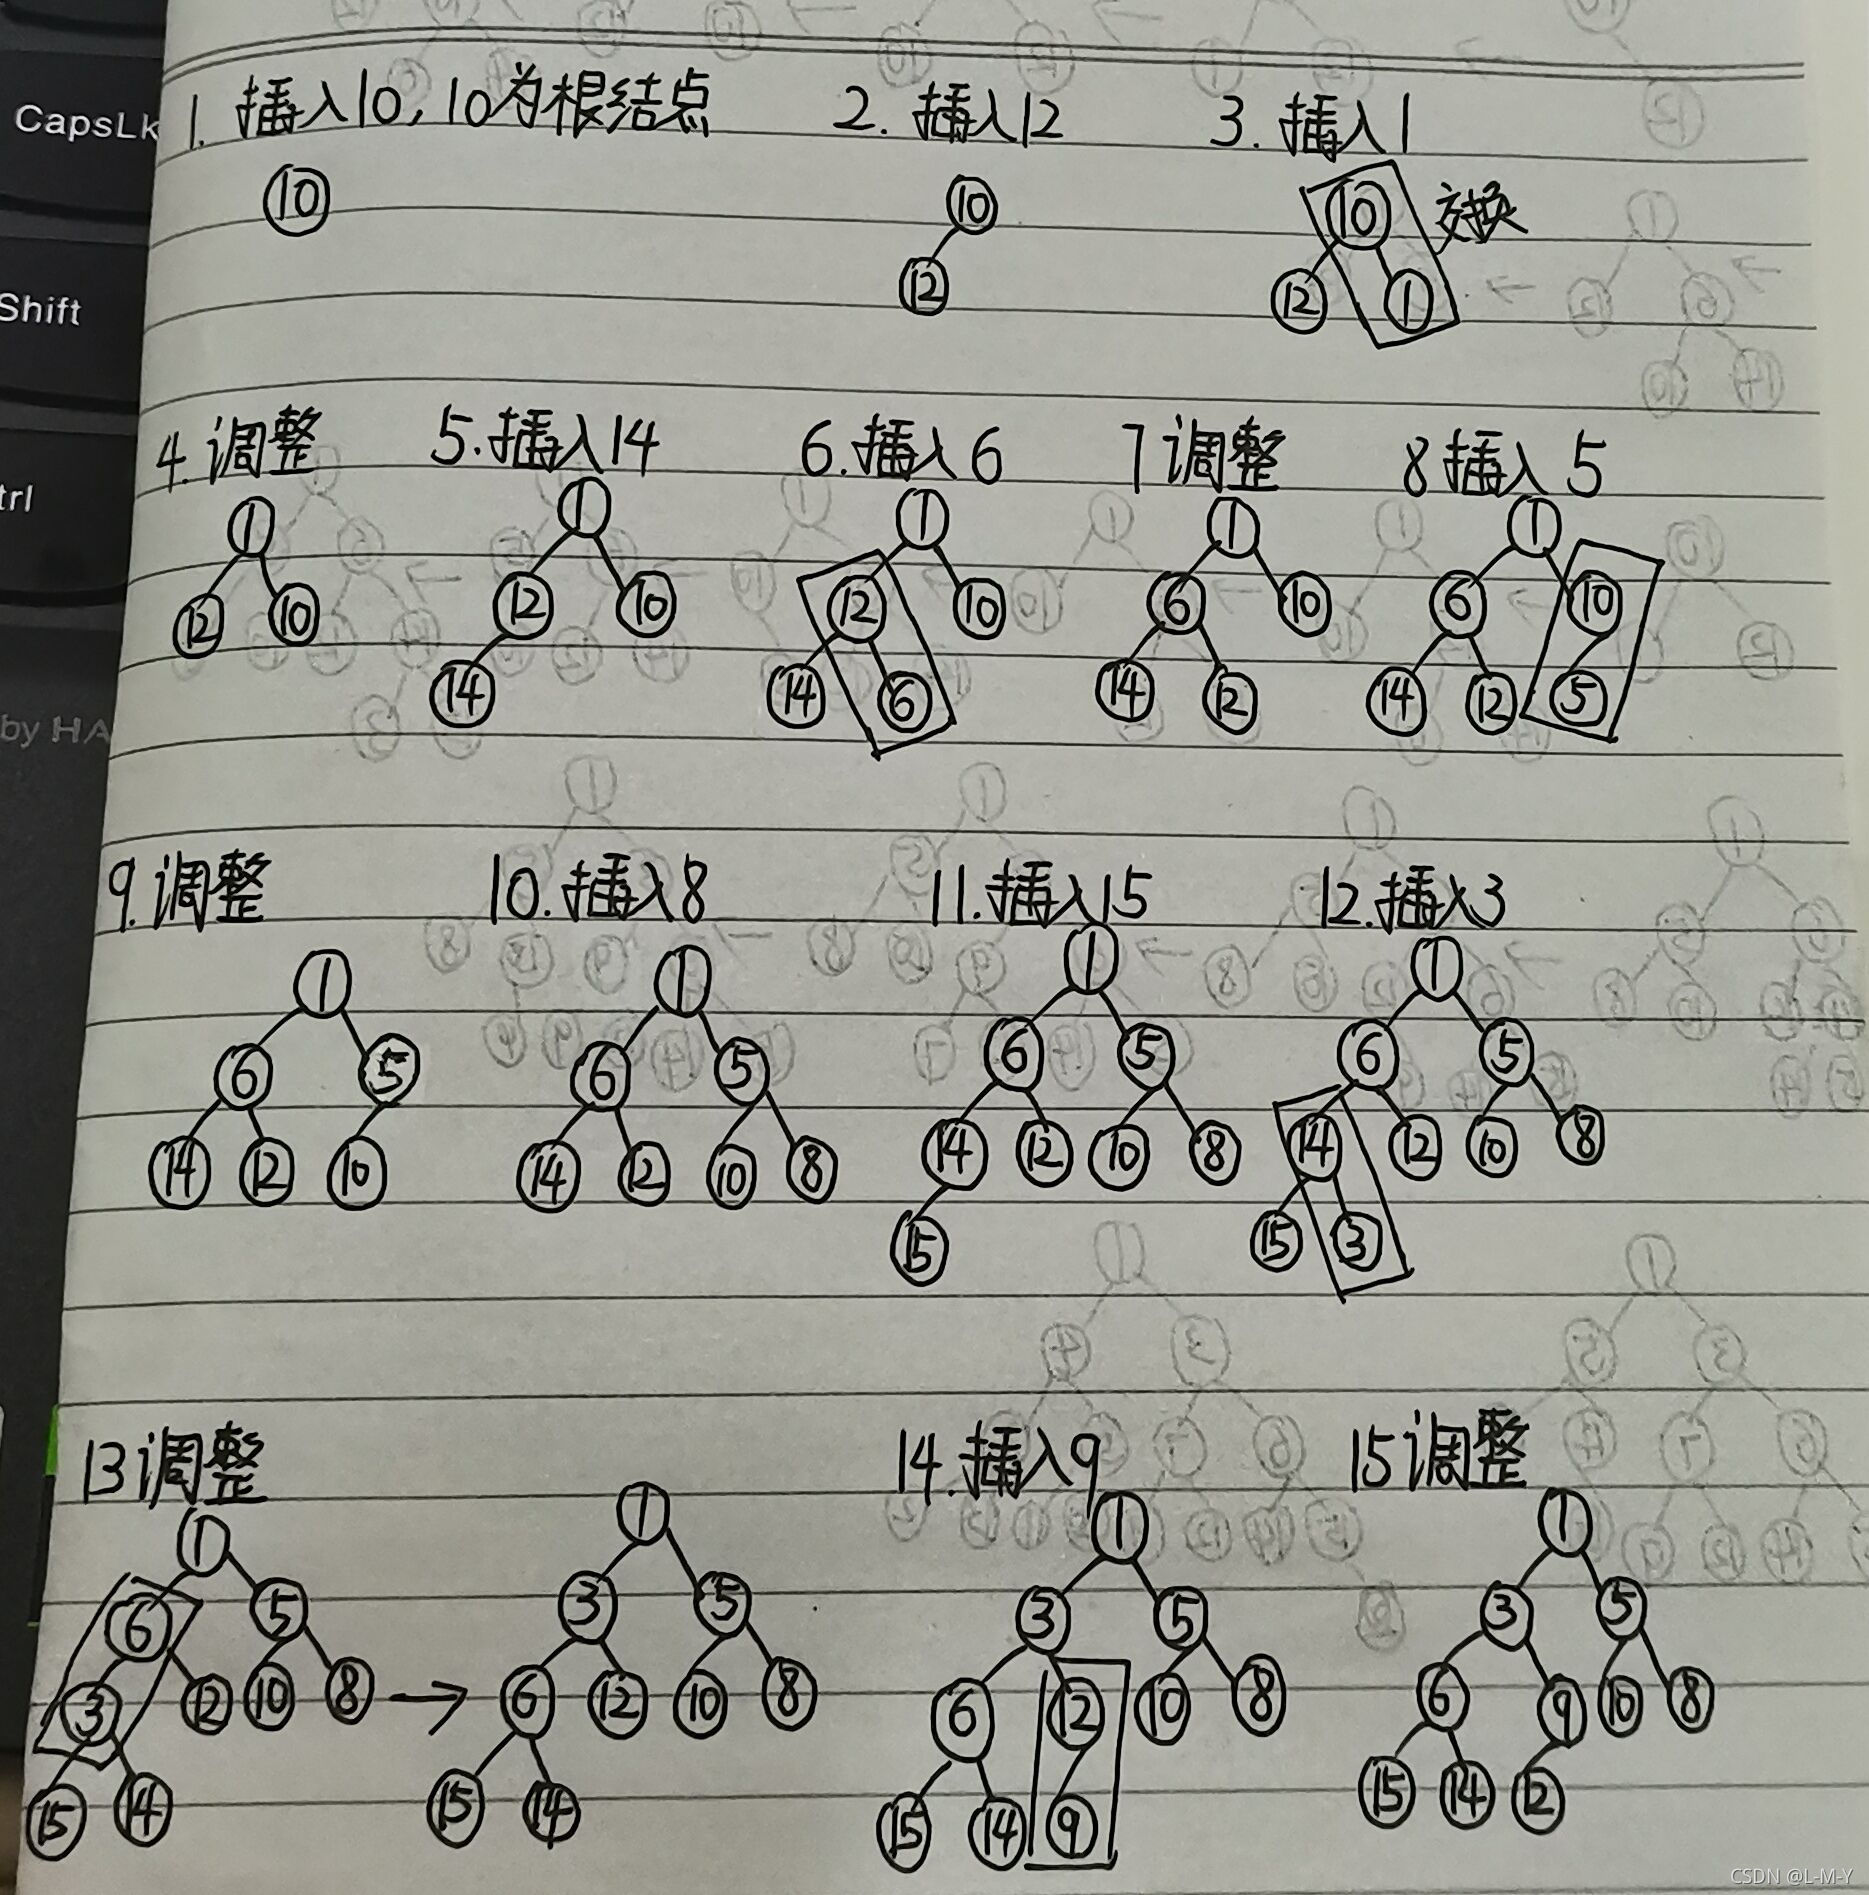 CapsLk
Shift
trl
by HA
1. 插入10,10为根结点
2. 插入12
3. 插入1
10
10
12
10
12
1
交换
4.调整
5.插入14
6.插入6
7调整
8插入5
1
12
10
1
12
10
14
1
12
10
14
6
1
6
10
14
12
1
6
10
14
12
5
9.调整
10.插入8
11.插入15
12.插入3
1
6
5
14
12
10
1
6
5
14
12
10
8
1
6
5
14
12
10
8
15
1
6
5
14
12
10
8
15
3
13调整
14.插入9
15调整
1
6
5
3
12
10
8
15
14
1
3
5
6
12
10
8
15
14
1
3
5
6
12
10
8
15
14
9
1
3
5
6
9
10
8
15
14
12
CSDN @L-M-Y